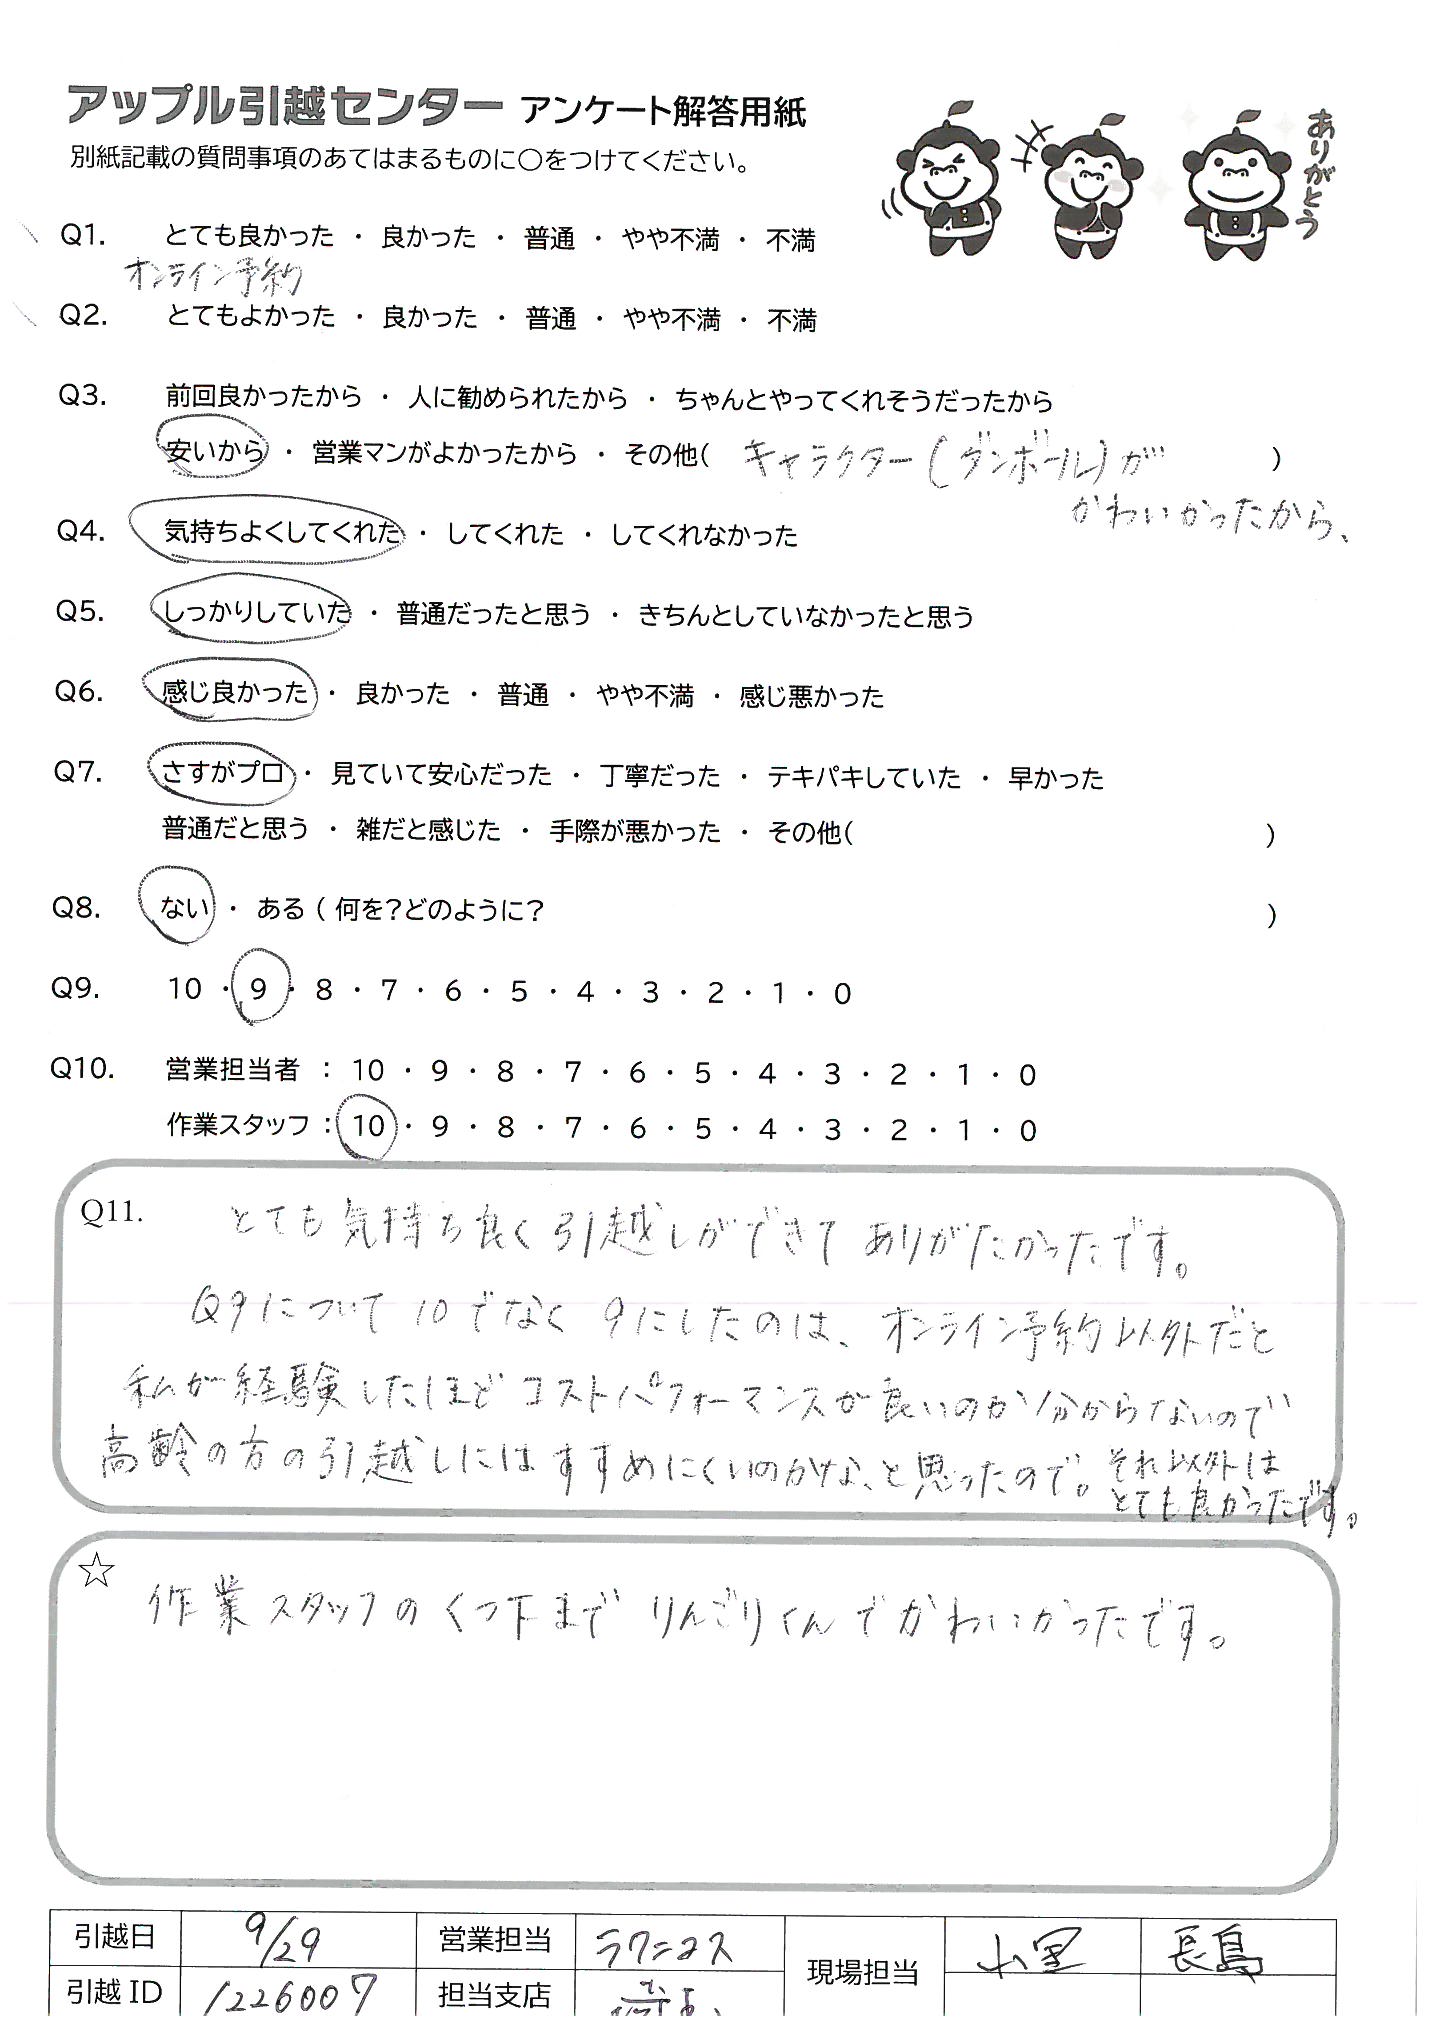 アップル引越センター アンケート解答用紙
別紙記載の質問事項のあてはまるものに○をつけてください。
ありがとう
Q1. とても良かった ・ 良かった ・ 普通 ・ やや不満 ・ 不満
オンライン予約
Q2. とてもよかった ・ 良かった ・ 普通 ・ やや不満 ・ 不満
Q3. 前回良かったから ・ 人に勧められたから ・ ちゃんとやってくれそうだったから
安いから ・ 営業マンがよかったから ・ その他( キャラクター(ダンボール)が )
かわいかったから、
Q4. 気持ちよくしてくれた ・ してくれた ・ してくれなかった
Q5. しっかりしていた ・ 普通だったと思う ・ きちんとしていなかったと思う
Q6. 感じ良かった ・ 良かった ・ 普通 ・ やや不満 ・ 感じ悪かった
Q7. さすがプロ ・ 見ていて安心だった ・ 丁寧だった ・ テキパキしていた ・ 早かった
普通だと思う ・ 雑だと感じた ・ 手際が悪かった ・ その他( )
Q8. ない ・ ある ( 何を?どのように? )
Q9. 10 ・ 9 ・ 8 ・ 7 ・ 6 ・ 5 ・ 4 ・ 3 ・ 2 ・ 1 ・ 0
Q10. 営業担当者 : 10 ・ 9 ・ 8 ・ 7 ・ 6 ・ 5 ・ 4 ・ 3 ・ 2 ・ 1 ・ 0
作業スタッフ : 10 ・ 9 ・ 8 ・ 7 ・ 6 ・ 5 ・ 4 ・ 3 ・ 2 ・ 1 ・ 0
Q11. とても気持ち良く引越しができてありがたかったです。
Q9について10でなく9にしたのは、オンライン予約以外だと
私が経験したほどコストパフォーマンスが良いのか分からないので
高齢の方の引越しにはすすめにくいのかな、と思ったので。それ以外は
とても良かったです。
☆
作業スタッフのくつ下までりんごりくんでかわいかったです。
引越日 9/29 営業担当 ラクニコス 現場担当 小里 長島
引越ID 1226007 担当支店